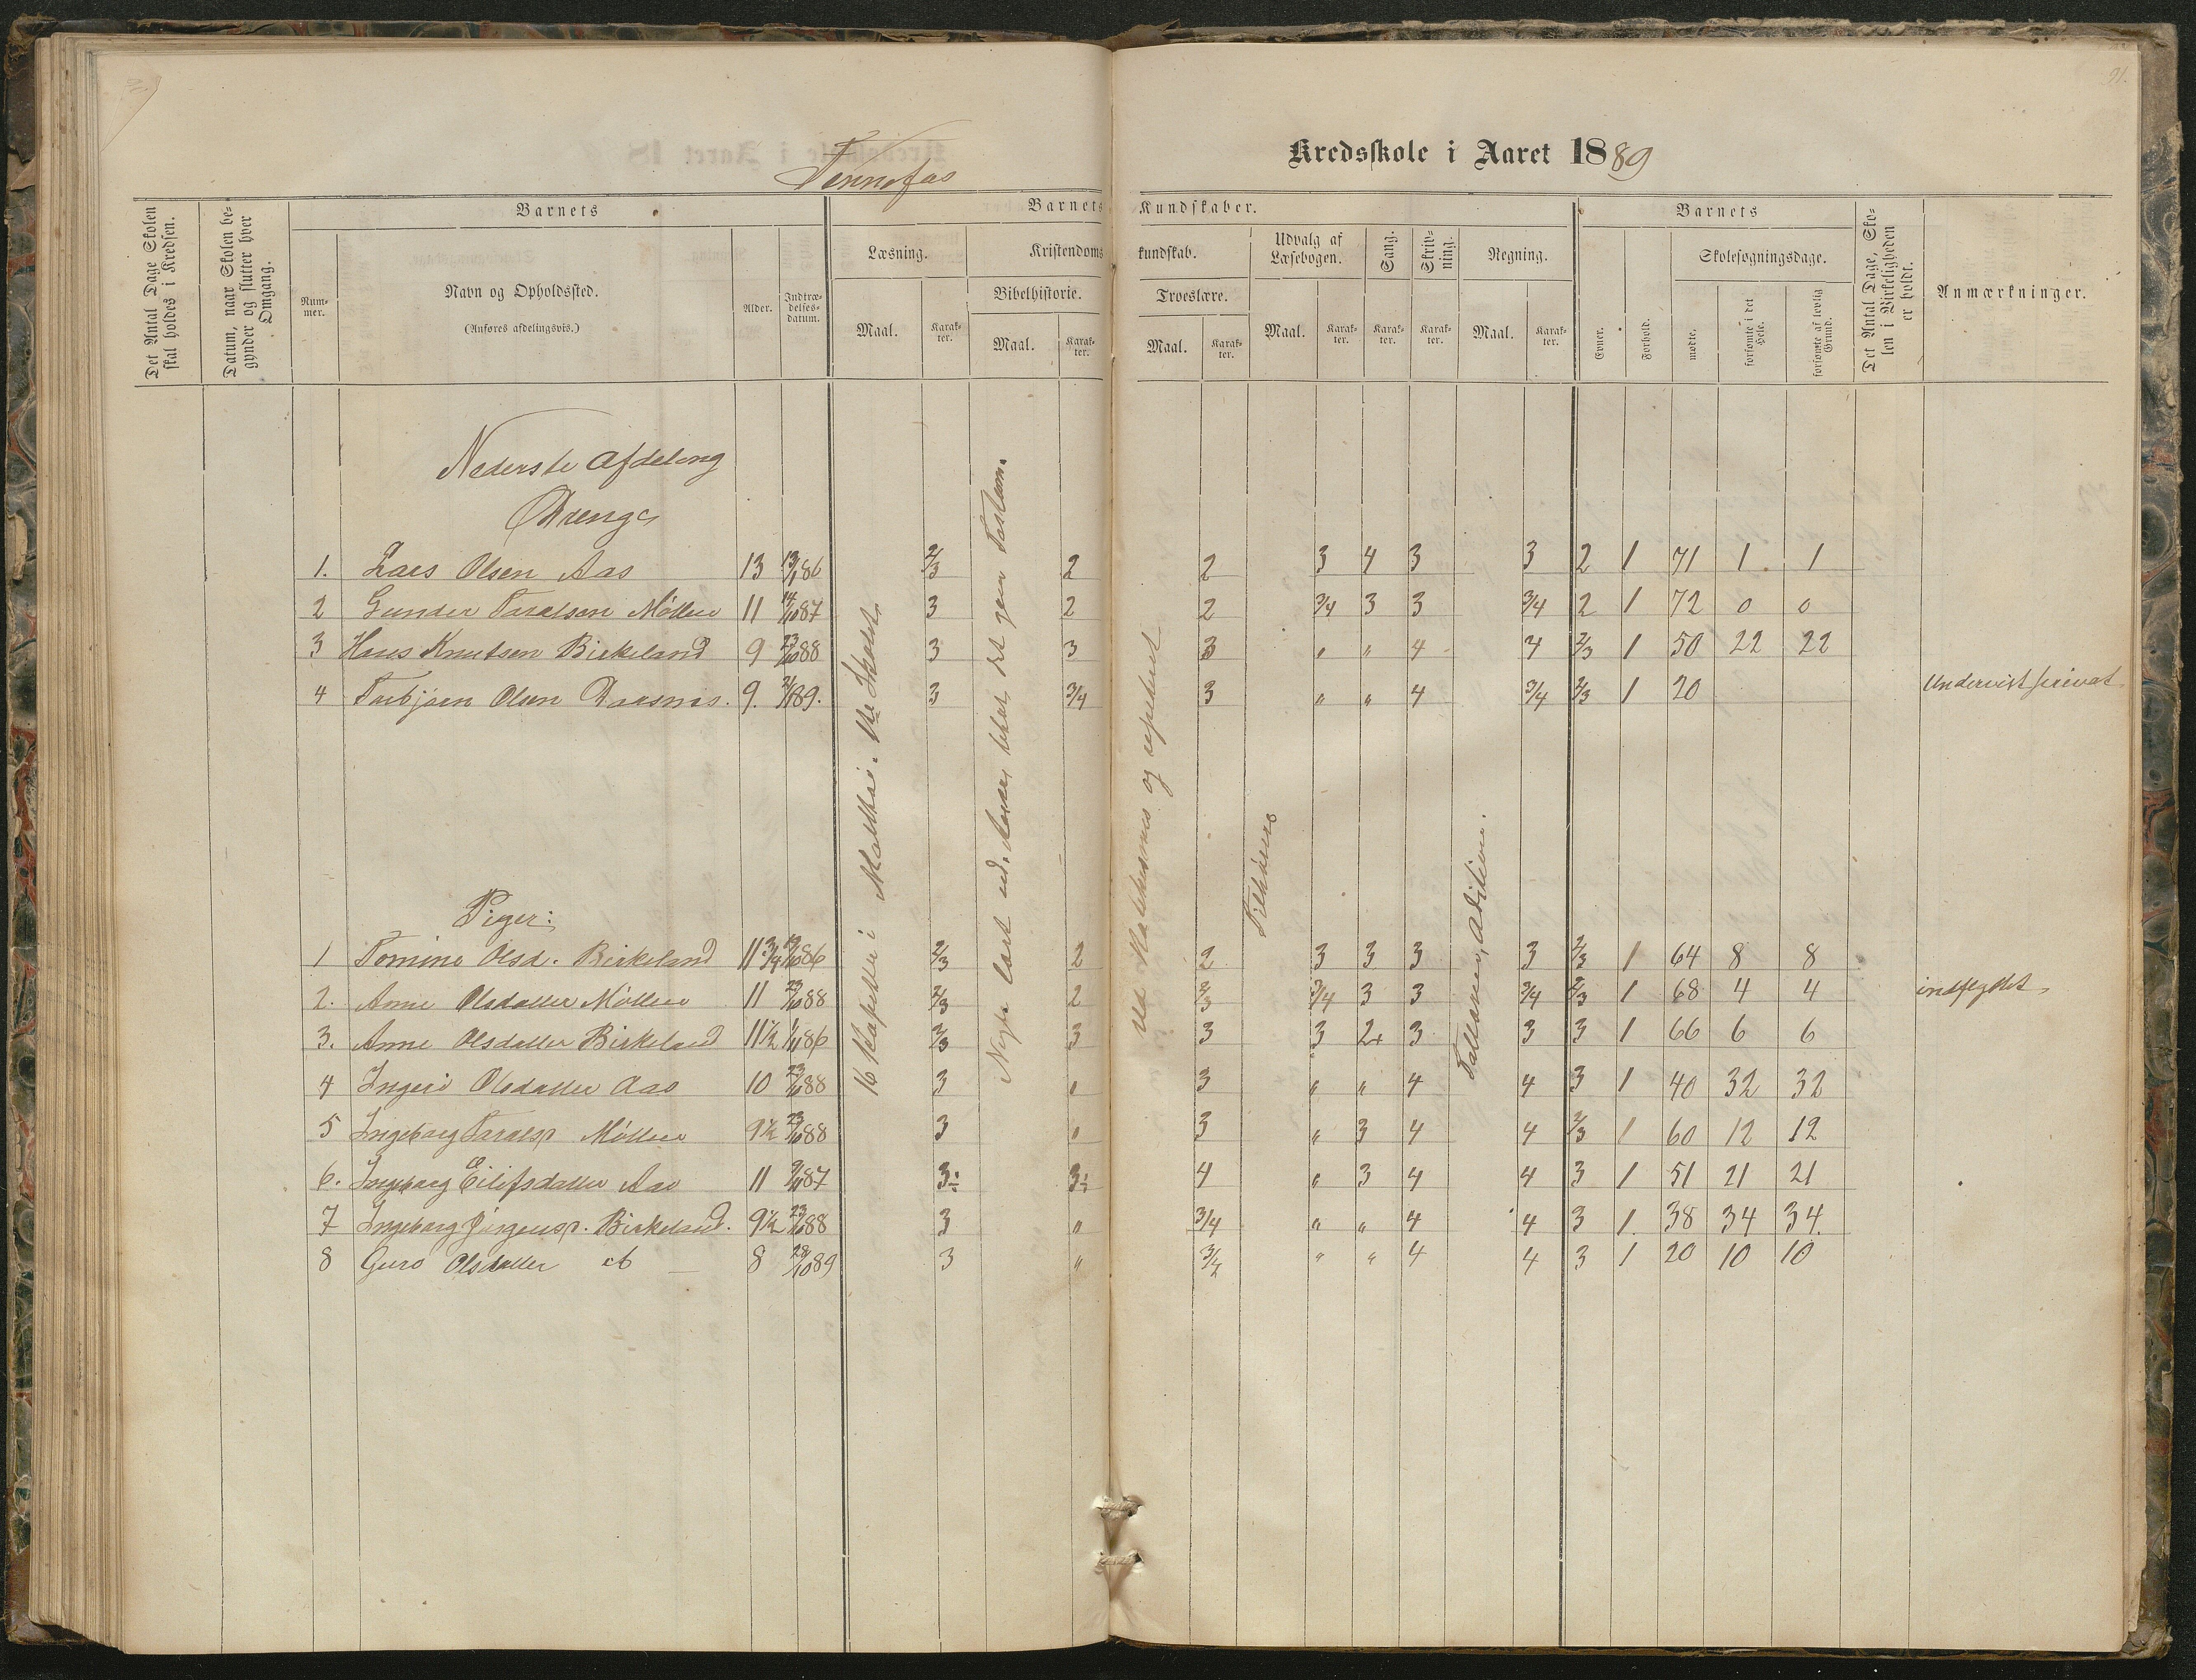 Tennefos
Kredsskole i Aaret 1889
91.
Det Antal Dage Skolen skal holdes i Kredsen.
Datum, naar Skolen begynder og slutter hver Omgang.
Barnets
Nummer.
Navn og Opholdssted.
(Anføres afdelingsvis.)
Alder.
Indtrædelses-datum.
Barnets Kundskaber.
Læsning.
Maal.
Karakter.
Kristendomskundskab.
Bibelhistorie.
Maal.
Karakter.
Troeslære.
Maal.
Karakter.
Udvalg af Læsebogen.
Maal.
Karakter.
Sang.
Karakter.
Skrivning.
Karakter.
Regning.
Maal.
Karakter.
Barnets
Evner.
Forhold.
Skolesøgningsdage.
mødte.
forsømte i det Hele.
forsømte af lovlig Grund.
Det Antal Dage, Skolen i Virkeligheden er holdt.
Anmærkninger.
Nederste Afdeling
Drenge
1. Lars Olsen Aas 13 13/1 86 2/3 2 2 3 4 3 3 2 1 71 1 1
2 Gunder Taralsen Møllen 11 14/10 87 3 2 2 3/4 3 3 3/4 2 1 72 0 0
3 Hans Knutsen Birkeland 9 23/10 88 3 3 3 " " 4 4 2/3 1 50 22 22
4 Torbjørn Olsen 9. 89. 3 3/4 3 " " 4 3/4 2/3 1 20 Undervist privat
16 Kapitler i Matthæi
Nyte læst ud,
ved Katekismus og repeteret
Tilhørere
Addition.
Piger:
1 Tomine Olsd. Birkeland 11 3/4 86 2/3 2 2 3 3 3 3 2/3 1 64 8 8
2. Anne Olsdatter Møllen 11 23/10 88 2/3 2 2/3 3/4 3 3 3/4 2/3 1 68 4 4 indflyttet
3. Anne Olsdatter Birkeland 11 1/2 86 2/3 3 3 3 2+ 3 3 3 1 66 6 6
4 Ingeri Olsdatter Aas 10 23/10 88 3 " 3 " " 4 4 3 1 40 32 32
5 Ingeborg Taralsd. Møllen 9 1/2 23/10 88 3 " 3 " 3 4 4 2/3 1 60 12 12
6. Ingeborg Eilifsdatter Aas 11 87 3÷ 3÷ 4 " 3 4 4 3 1 51 21 21
7 Ingeborg Jørgensd. Birkeland. 9 1/2 23/10 88 3 " 3/4 " " 4 4 3 1. 38 34 34.
8 Guro Olsdatter 8 28/10 89 3 " 3/4 " " 4 4 3 1 20 10 10